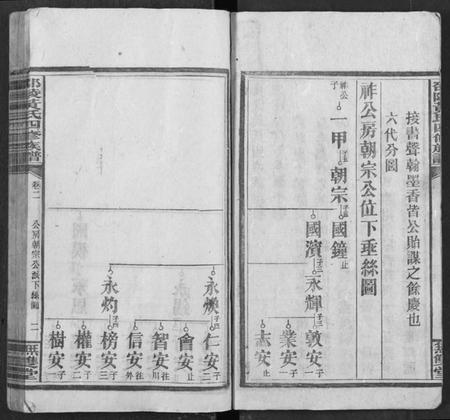 邵陵黃氏四修族譜
接書聲翰墨香皆公貽謀之餘慶也
六代分圖
祚公房朝宗公位下垂絲圖
祚公子
一甲
朝宗
國鐘止
國濱
永輝
敦安
業安
志安
永煥
仁安
會安止
智安
信安
永灼
榜安
權安
樹安
邵陵黃氏四修族譜
卷二
公房朝宗公派下絲圖
二
無雙堂